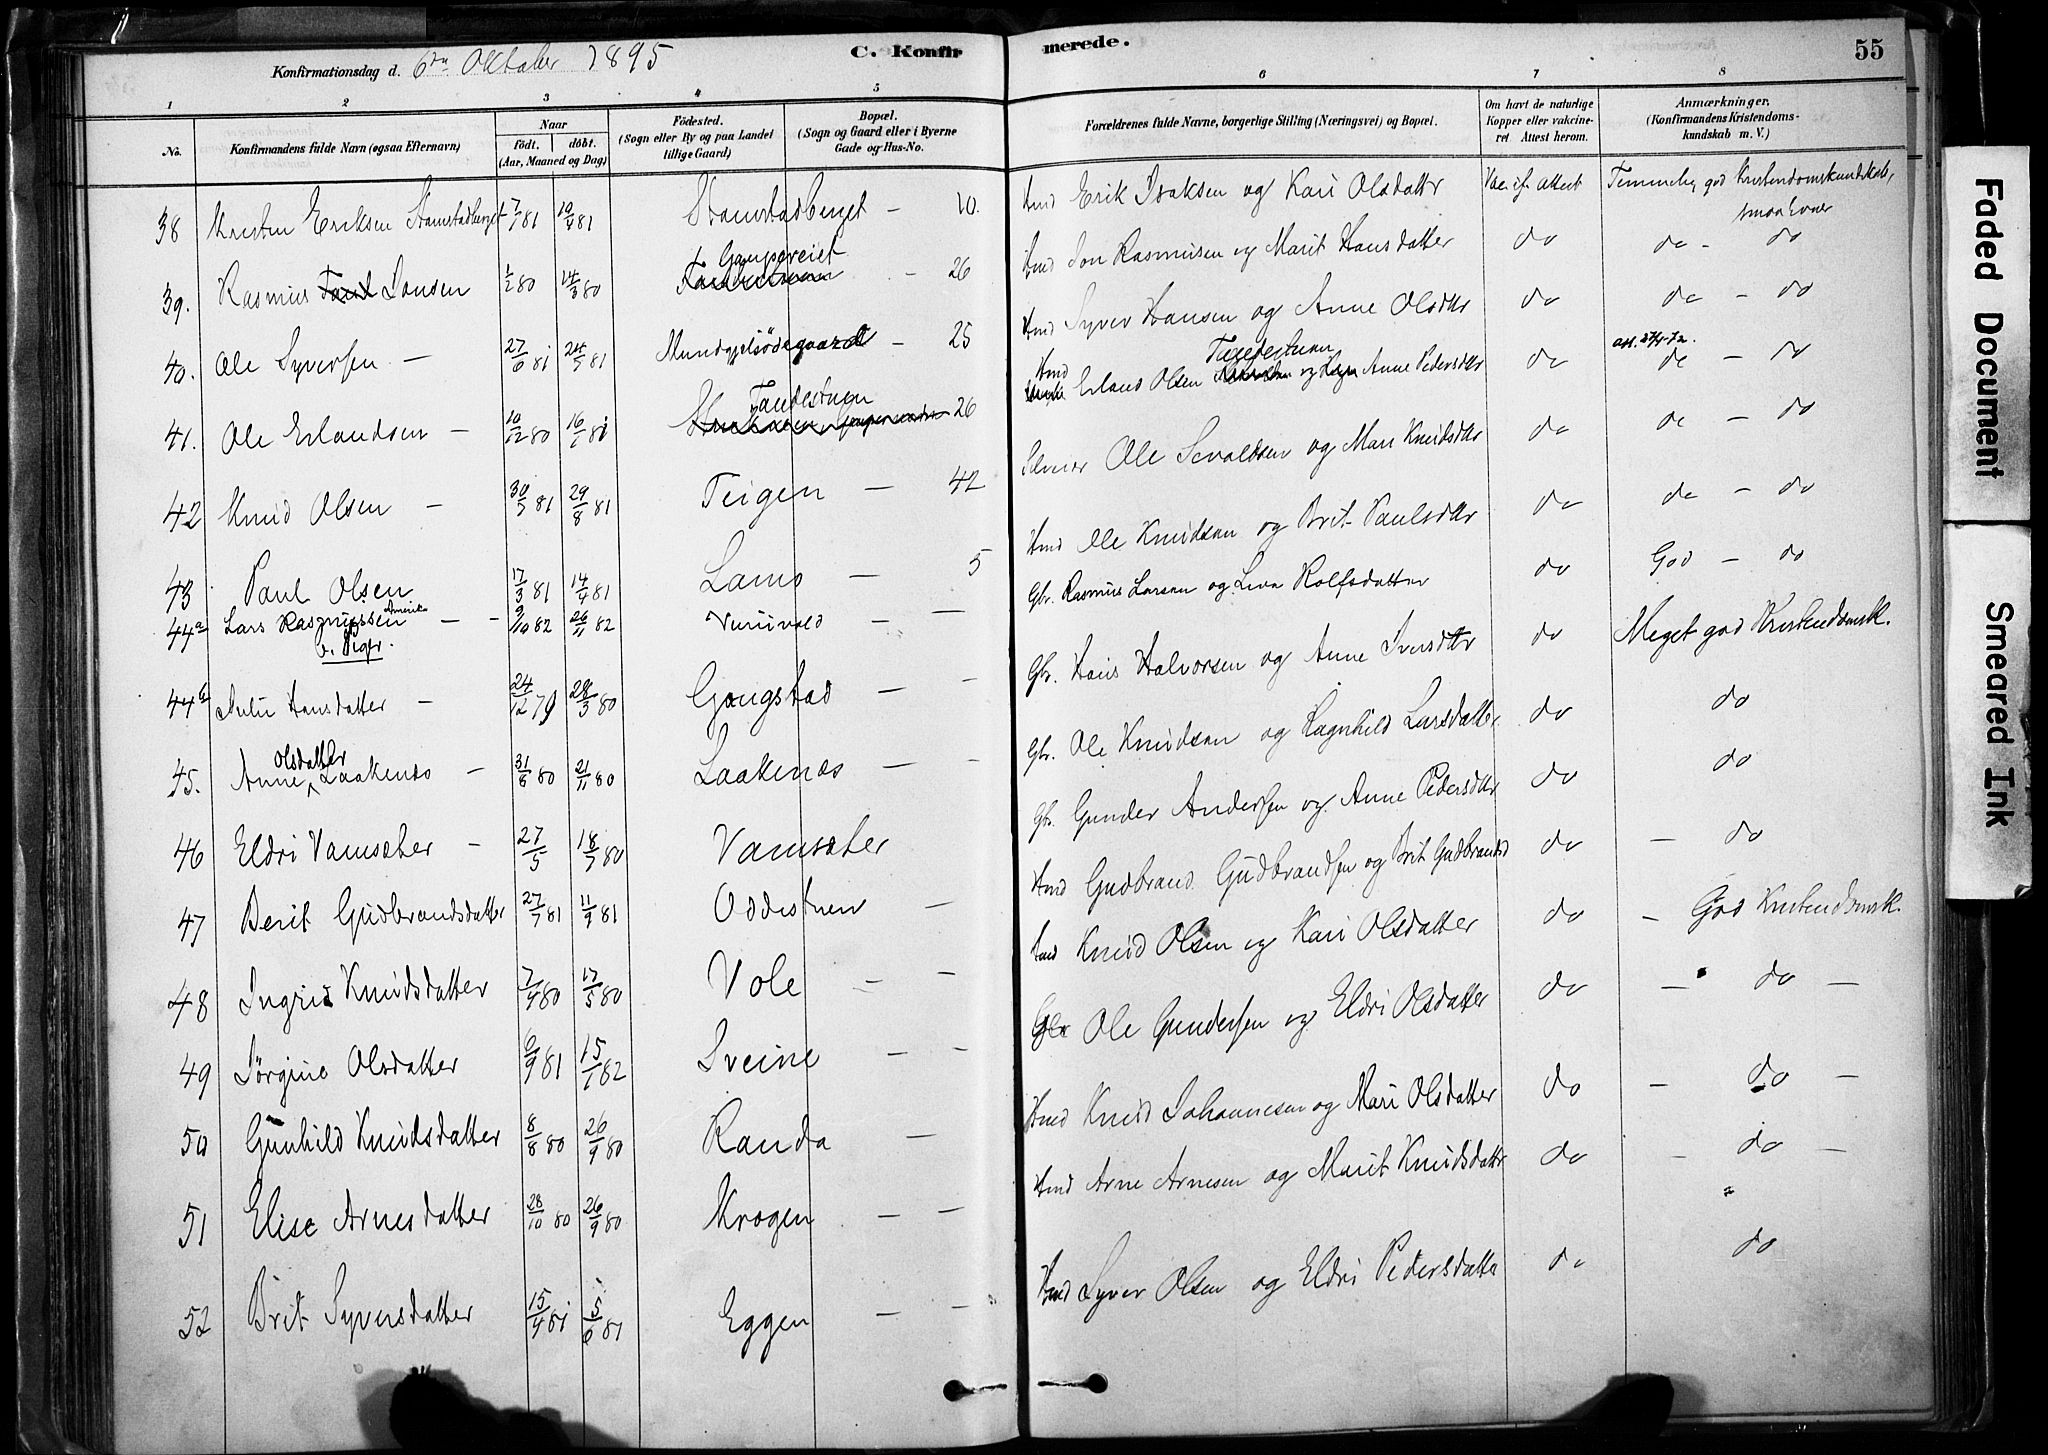 Konfirmationsdag d. 6te Oktober 1895
C. Konfirmerede.
55
1 2 3 4 5 6 7 8
No.
Konfirmandens fulde Navn (ogsaa Efternavn)
Naar
født. døbt.
(Aar, Maaned og Dag)
Fødested.
(Sogn eller By og paa Landet
tillige Gaard)
Bopæl.
(Sogn og Gaard eller i Byerne
Gade og Hus-No.
Forældrenes fulde Navne, borgerlige Stilling (Næringsvei) og Bopæl.
Om havt de naturlige
Kopper eller vakcine-
ret Attest herom.
Anmærkninger.
(Konfirmandens Kristendoms-
kundskab m. V.)
38 Kristen Eriksen 7/1 81 10/4 81 10. Hmd Erik Isaksen og Kari Olsdattr Vac. if. attest Temmelig god Kristendomskundskab,
smaa Evner
39. Rasmus Jonsen 1/2 80 14/3 80 26 Hmd Jon Rasmusen og Marit Hansdatter do do - do
40. Ole Syversen — 27/6 81 24/5 81 Mundgjelsødegaard - 25 Hmd Syver Hansen og Anne Olsdtr do do - do
41. Ole Erlandsen — 10/12 80 16/1 81 26 Hmd Erland Olsen og Anne Pedersdtr do do - do
42 Knud Olsen — 30/5 81 29/8 81 Teigen — 42 Ole Sevaldsen og Mari Knudsdtr do do - do
43 Paul Olsen 17/3 81 14/4 81 Lams — 5 Hmd Ole Knudsen og Brit Paulsdtr do do - do
44a Lars Rasmussen Amerika 9/10 82 26/11 82 — Gbr. Rasmus Larsen og Rolfsdatter do God - do
b. Piger.
44b Julie Hansdatter — 24/12 79 28/3 80 Gaugstad — — Gbr. Hans Halvorsen og Anne Iversdtr do Meget god Kristendomsk.
45. Anne Olsdatter Laakenas — 31/8 80 21/11 80 Laakenas — — Gbr. Ole Knudsen og Ragnhild Larsdatter do do
46 Eldri Vamsæter — 27/5 18/7 80 Vamsæter Gbr. Gunder Andersen og Anne Pedersdtr do do
47 Berit Gudbrandsdatter 27/7 81 11/9 81 Oddestuen — Hmd Gudbrand Gudbrandsen og Brit Gudbrandsd do — do
48 Ingrid Knudsdatter 7/4 80 17/5 80 Vole — — Hmd Knud Olsen og Kari Olsdatter do — God Kristendomsk.
49 Jørgine Olsdatter 6/9 81 15/1 82 Sveine — — Gbr Ole Gundersen og Eldri Olsdatter do — do —
50 Gunhild Knudsdatter 8/8 80 26/9 80 Randa — Hmd Knud Johannesen og Mari Olsdatter do — do —
51 Elise Arnesdatter 28/10 80 26/9 80 Krogen — — Hmd Arne Arnesen og Marit Knudsdattr do — do —
52 Brit Syversdatter 15/4 81 5/6 81 Eggen — — Hmd Syver Olsen og Eldri Pedersdatter do do
Faded Document
Smeared Ink